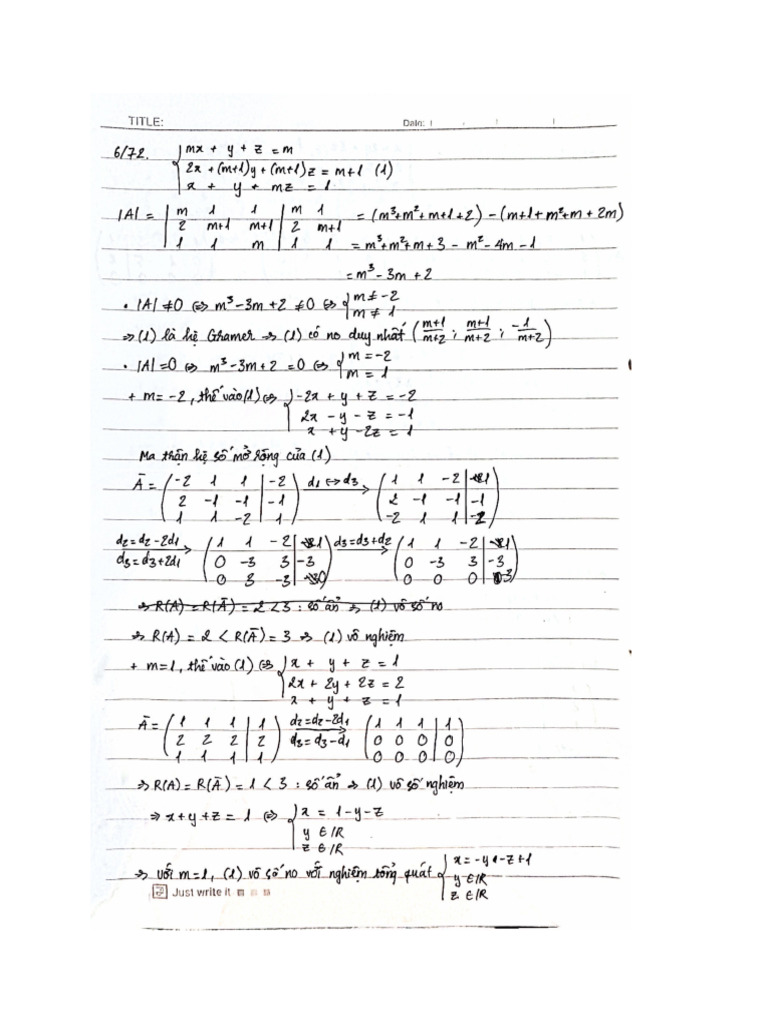 TITLE: Date:
6/72. { mx + y + z = m
2x + (m+1)y + (m+1)z = m+1 (1)
x + y + mz = 1
|A| = | m 1 1 | m 1 = (m³+m²+m+1+2) - (m+1+m²+m+2m)
2 m+1 m+1 | 2 m+1
1 1 m | 1 1 = m³+m²+m+3-m²-4m-1
= m³-3m+2
• |A| ≠ 0 ⇔ m³-3m+2 ≠ 0 ⇔ { m ≠ -2
m ≠ 1
⇒ (1) là hệ Gramer ⇒ (1) có no duy nhất ( m+1/m+2 ; m+1/m+2 ; -1/m+2 )
• |A| = 0 ⇔ m³-3m+2 = 0 ⇔ { m = -2
m = 1
+ m = -2, thế vào (1) ⇔ { -2x + y + z = -2
2x - y - z = -1
x + y - 2z = 1
Ma trận hệ số mở rộng của (1)
Ā = ( -2 1 1 | -2 ) d1 ↔ d3 → ( 1 1 -2 | 1 )
2 -1 -1 | -1 2 -1 -1 | -1
1 1 -2 | 1 -2 1 1 | -2
d2 = d2 - 2d1 ( 1 1 -2 | 1 ) d3 = d3 + d2 → ( 1 1 -2 | 1 )
d3 = d3 + 2d1 → 0 -3 3 | -3 0 -3 3 | -3
0 3 -3 | 0 0 0 0 | -3
⇒ R(A) = R(Ā) = 2 < 3 : số ẩn ⇒ (1) vô số no
⇒ R(A) = 2 < R(Ā) = 3 ⇒ (1) vô nghiệm
+ m = 1, thế vào (1) ⇔ { x + y + z = 1
2x + 2y + 2z = 2
x + y + z = 1
Ā = ( 1 1 1 | 1 ) d2 = d2 - 2d1 ( 1 1 1 | 1 )
2 2 2 | 2 d3 = d3 - d1 → 0 0 0 | 0
1 1 1 | 1 0 0 0 | 0
⇒ R(A) = R(Ā) = 1 < 3 : số ẩn ⇒ (1) vô số nghiệm
⇒ x + y + z = 1 ⇔ { x = 1 - y - z
y ∈ IR
z ∈ IR
⇒ với m = 1, (1) vô số no với nghiệm tổng quát { x = -y - z + 1
y ∈ IR
z ∈ IR
Just write it